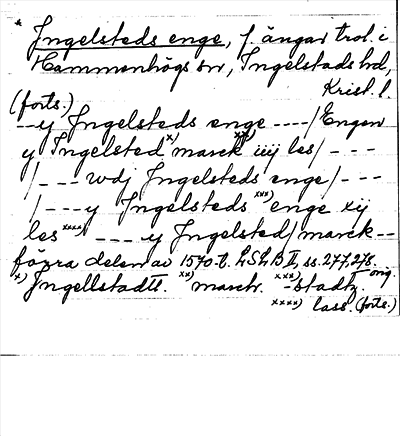 * Jngelsteds enge, f. ängar trol. i
Hammenhögs sn, Ingelstads hd,
Krist. l.
(forts.)
---y Jngelsteds enge ----/Engen
y Ingelsted x) marck xx) iiij les/ ---
/--- wdj Jngelsteds enge/---
/---y Jngelsteds xxx) enge xij
les xxxx) ----y Jngelsted/marck--
förra delen av 1570-t. LSLB II, ss. 277, 278.
x) Jngellstadtt. xx) march. xxx) -stadtz. orig.
xxxx) lass. (forts.)